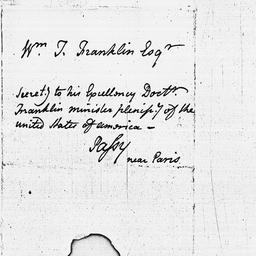 Wm T. Franklin Esqr
Secrety to his Excellency Doctr.
Franklin minister plenipy of the
united States of america –
Passy
near Paris